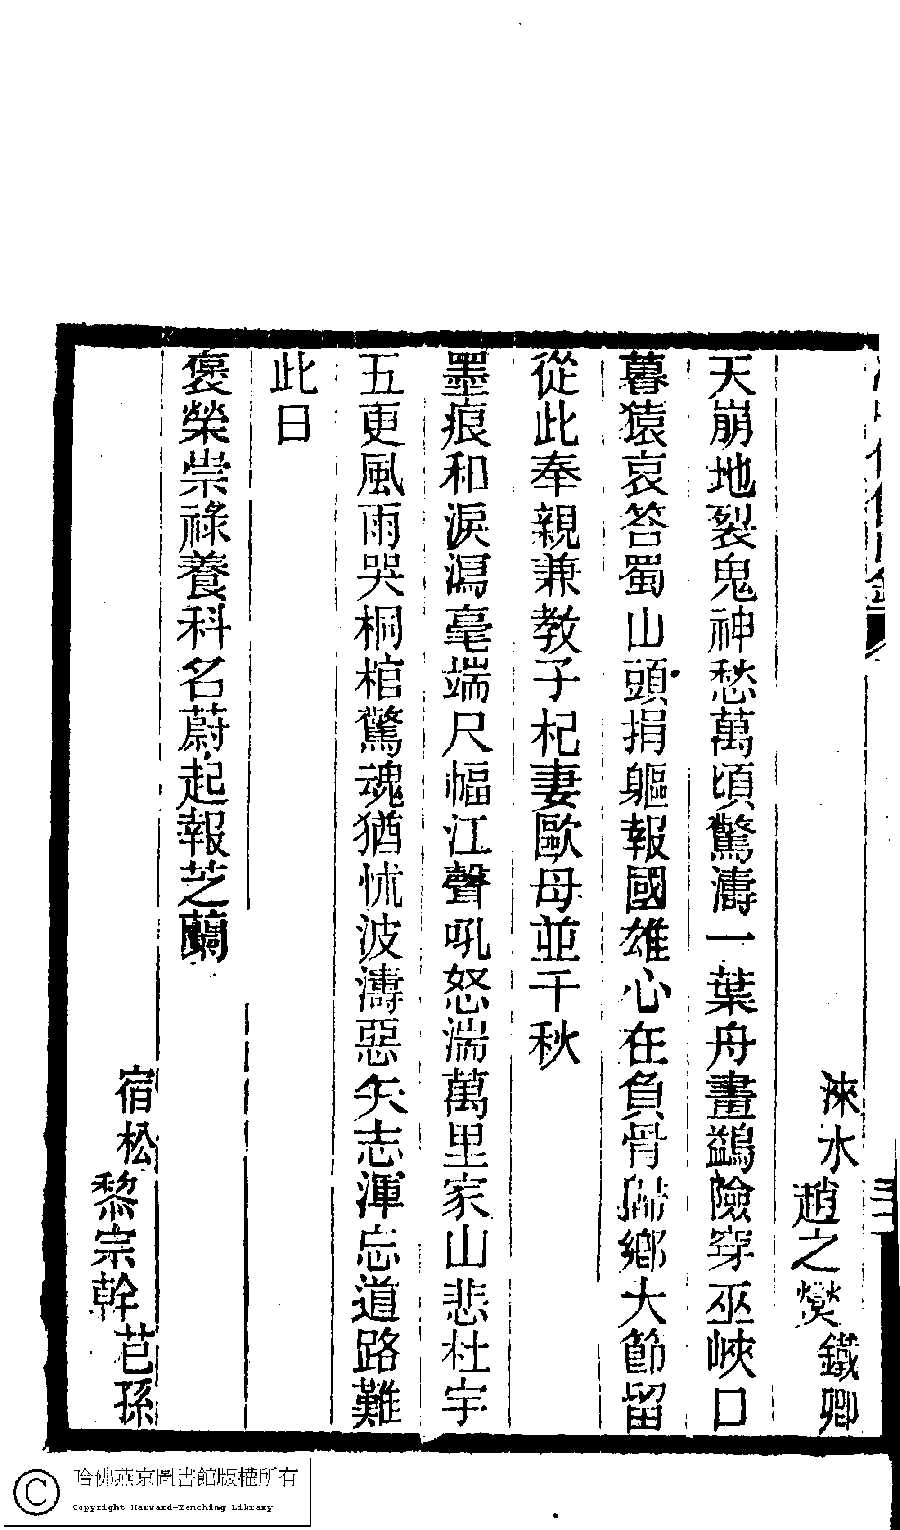 淶水趙之燮鐵卿
天崩地裂鬼神愁萬頃驚濤一葉舟畫鷁險穿巫峽口
暮猿哀答蜀山頭捐軀報國雄心在負骨歸鄉大節留
從此奉親兼教子杞妻歐母並千秋
宿松黎宗幹芑孫
墨痕和淚瀉毫端尺幅江聲吼怒湍萬里家山悲杜宇
五更風雨哭桐棺驚魂猶怵波濤惡矢志渾忘道路難
此日
褒榮崇祿養科名蔚起報芝蘭
哈佛燕京圖書館版權所有
Copyright Harvard-Yenching Library